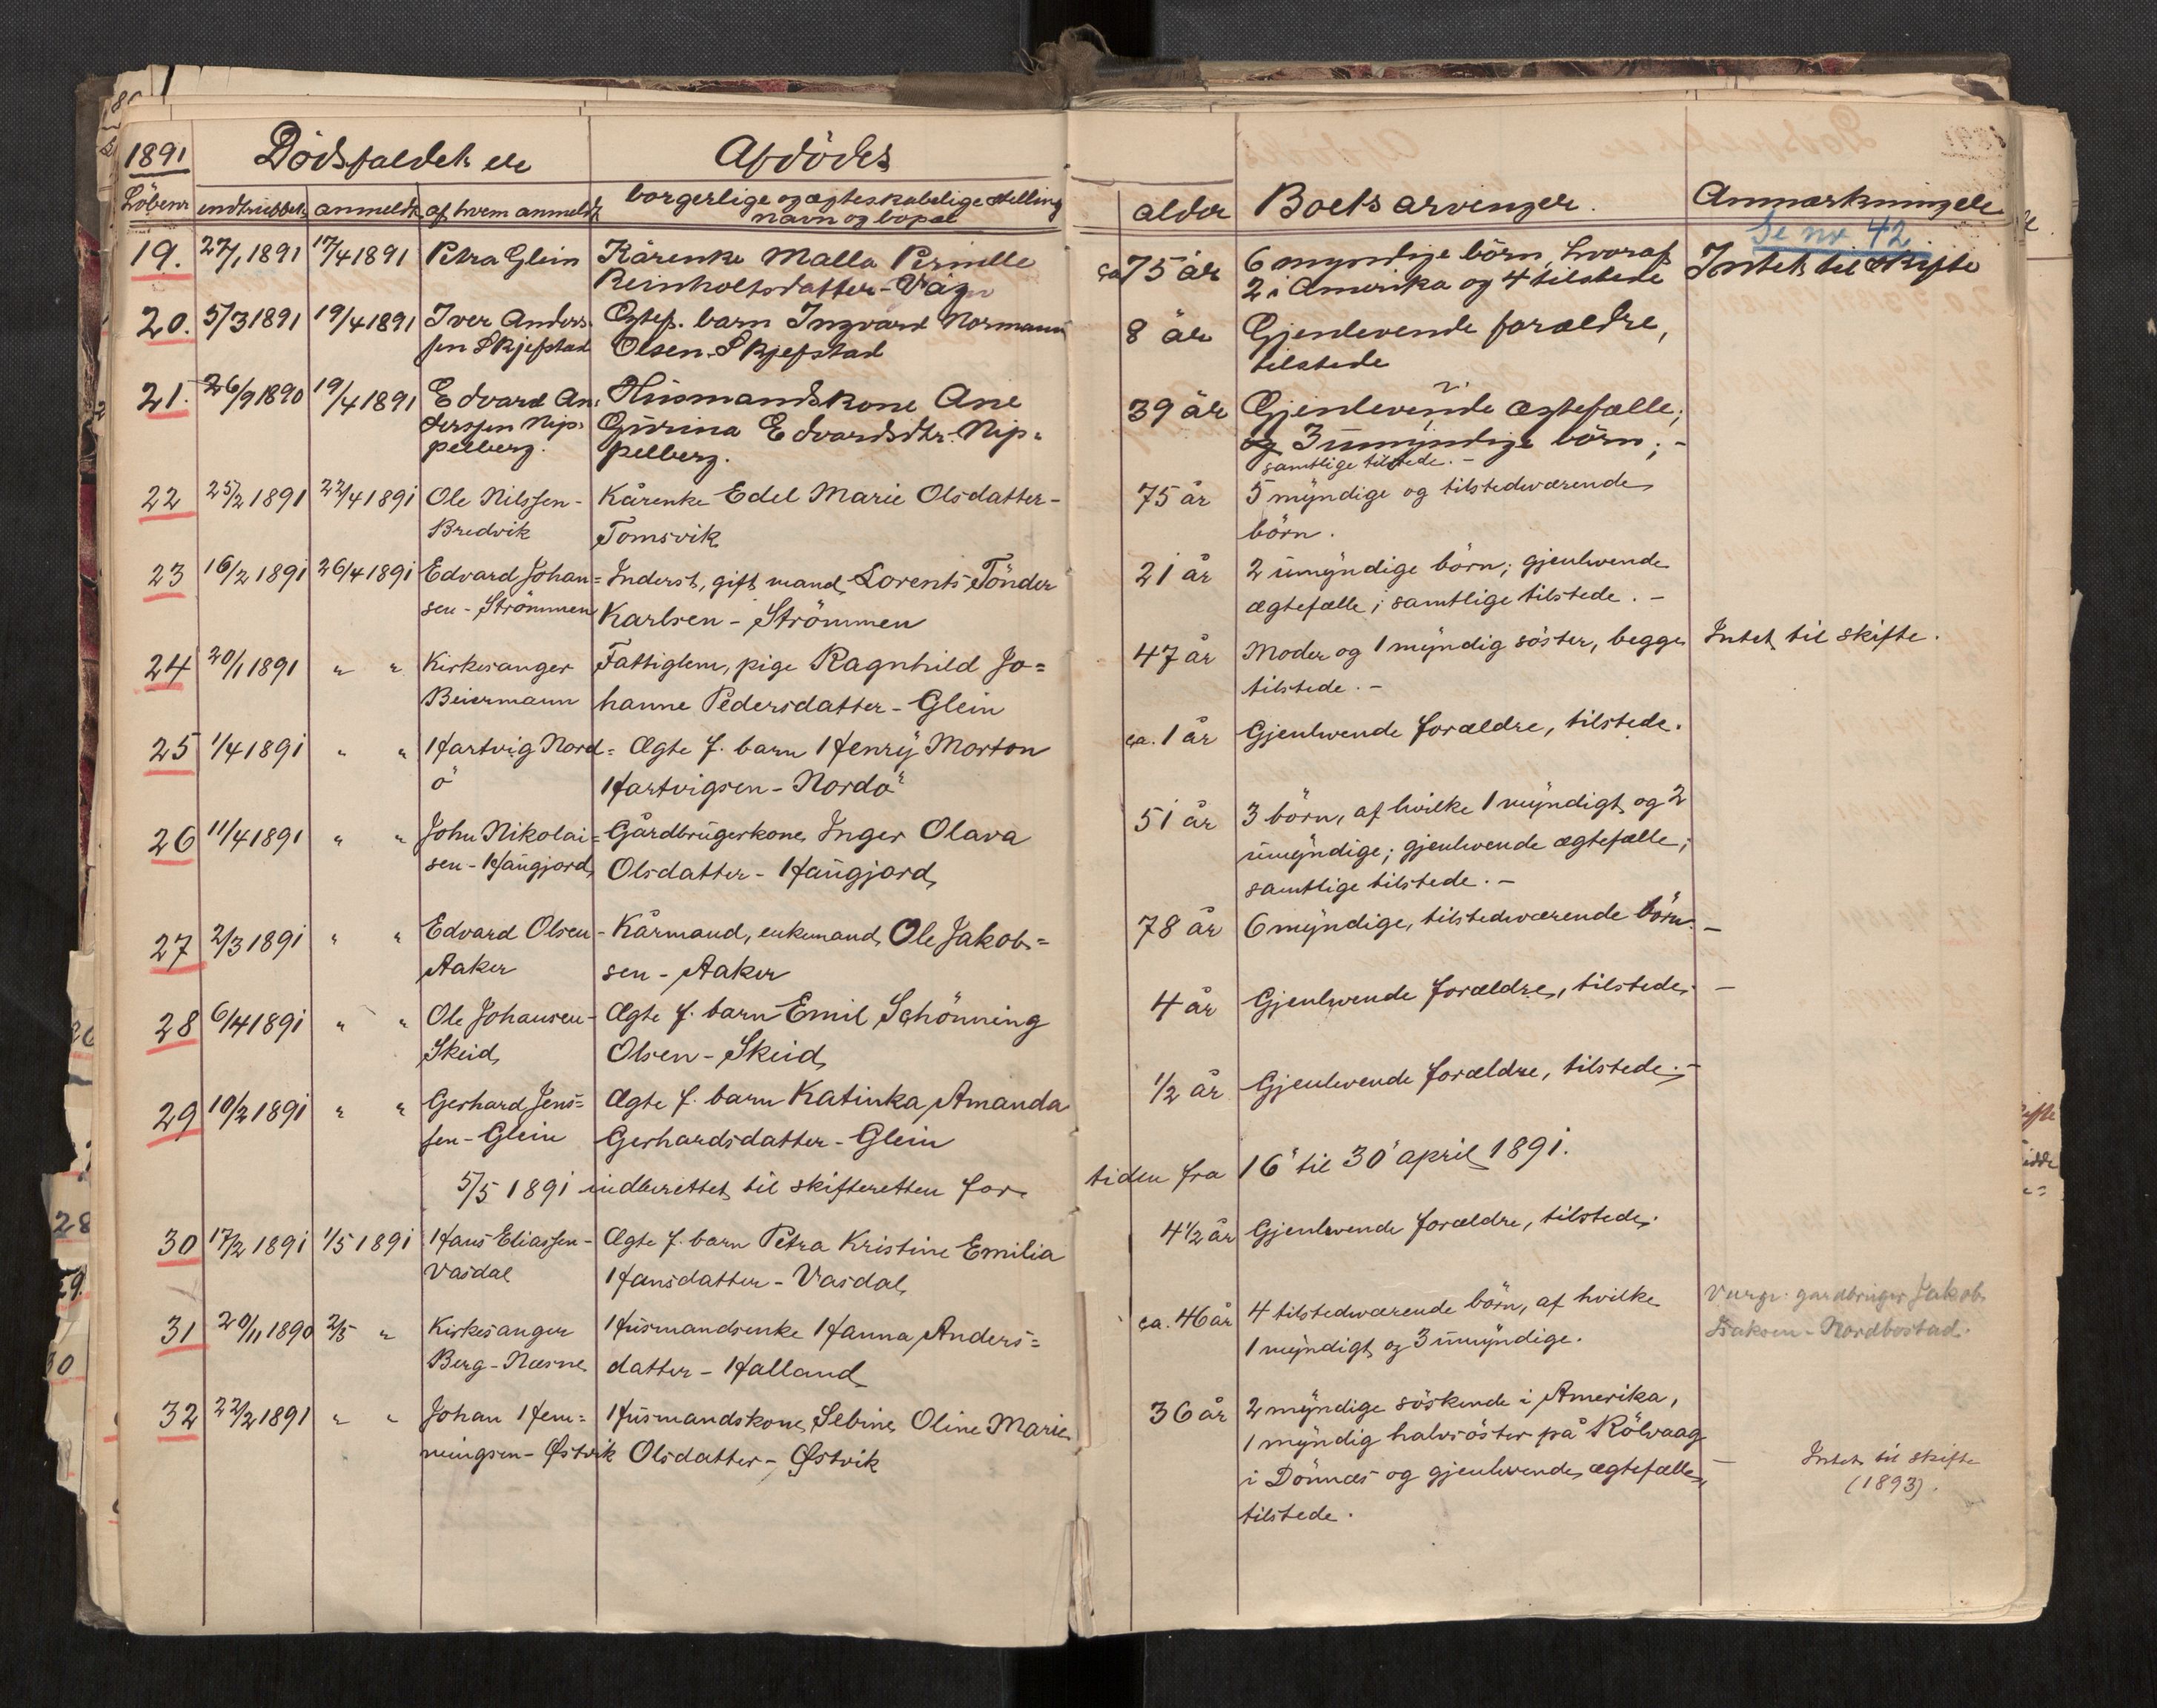 1891 Dödsfaldet er Afdödes
Löbenr indtruffet anmeldt af hvem anmeldt borgerlige og ægteskabelige stilling
navn og bopæl
alder Boets arvinger. Anmærkninger
Se nr 42
19. 27/1 1891 17/4 1891 Petra Glein Kårenke Malla Pernille ca 75 år 6 myndige börn, hvoraf Intet til skifte
Reinholtsdatter - Våg 2 i Amerika og 4 tilstede
20. 5/3 1891 19/4 1891 Iver Anders- Ægtef. barn Ingvard Normann 8 år Gjenlevende forældre,
sen Skjefstad Olsen - Skjefstad tilstede
21. 26/9 1890 19/4 1891 Edvard An- Husmandskone Ane 39 år Gjenlevende ægtefælle;
derssen Nip- Gurina Edvardsdtr. Nip- og 3 umyndige börn; -
pelberg. pelberg. samtlige tilstede. -
22 25/2 1891 22/4 1891 Ole Nilssen - Kårenke Edel Marie Olsdatter - 75 år 5 myndige og tilstedværende
Bredvik Tomsvik börn.
23 16/2 1891 26/4 1891 Edvard Johan= Inderst, gift mand, Lorents Tönder 21 år 2 umyndige börn; gjenlevende
sen - Strömmen Karlsen - Strömmen ægtefælle; samtlige tilstede. -
24 20/1 1891 " " Kirkesanger Fattiglem, pige Ragnhild Jo= 47 år Moder og 1 myndig söster, begge Intet til skifte.
Beiermann hanne Pedersdatter - Glein tilstede. -
25 1/4 1891 " " Hartvig Nord= Ægte f. barn Henry Morton ca. 1 år Gjenlevende forældre, tilstede.
ö Hartvigsen - Nordö
26 11/4 1891 " " John Nikolai= Gårdbrugerkone Inger Olava 51 år 3 börn, af hvilke 1 myndigt og 2
sen - Haugjord Olsdatter - Haugjord umyndige; gjenlevende ægtefælle;
samtlige tilstede. -
27 2/3 1891 " " Edvard Olsen - Kårmand, enkemand Ole Jakob= 78 år 6 myndige, tilstedværende börn. -
Aaker sen - Aaker
28 6/4 1891 " " Ole Johansen - Ægte f. barn Emil Schönning 4 år Gjenlevende forældre, tilstede. -
Skeid Olsen - Skeid
29 10/2 1891 " " Gerhard Jens= Ægte f. barn Katinka Amanda 1/2 år Gjenlevende forældre, tilstede. -
sen - Glein Gerhardsdatter - Glein
5/5 1891 indberettet til skifteretten for tiden fra 16' til 30' april 1891.
30 17/2 1891 1/5 1891 Hans Eliassen - Ægte f. barn Petra Kristine Emilia 4 1/2 år Gjenlevende forældre, tilstede.
Vasdal Hansdatter - Vasdal
31 20/11 1890 2/5 " Kirkesanger Husmandsenke Hanna Anders= ca. 46 år 4 tilstedværende börn, af hvilke Værge: gardbruger Jakob
Berg - Næsne datter - Halland 1 myndigt og 3 umyndige. Isaksen - Nordbostad.
32 22/2 1891 " " Johan Hen= Husmandskone Sebine Oline Marie 36 år 2 myndige söskende i Amerika,
ningsen - Østvik Olsdatter - Østvik 1 myndig halvsöster på Rölvaag
i Dönnæs og gjenlevende ægtefælle, - Intet til skifte
tilstede. (1893).